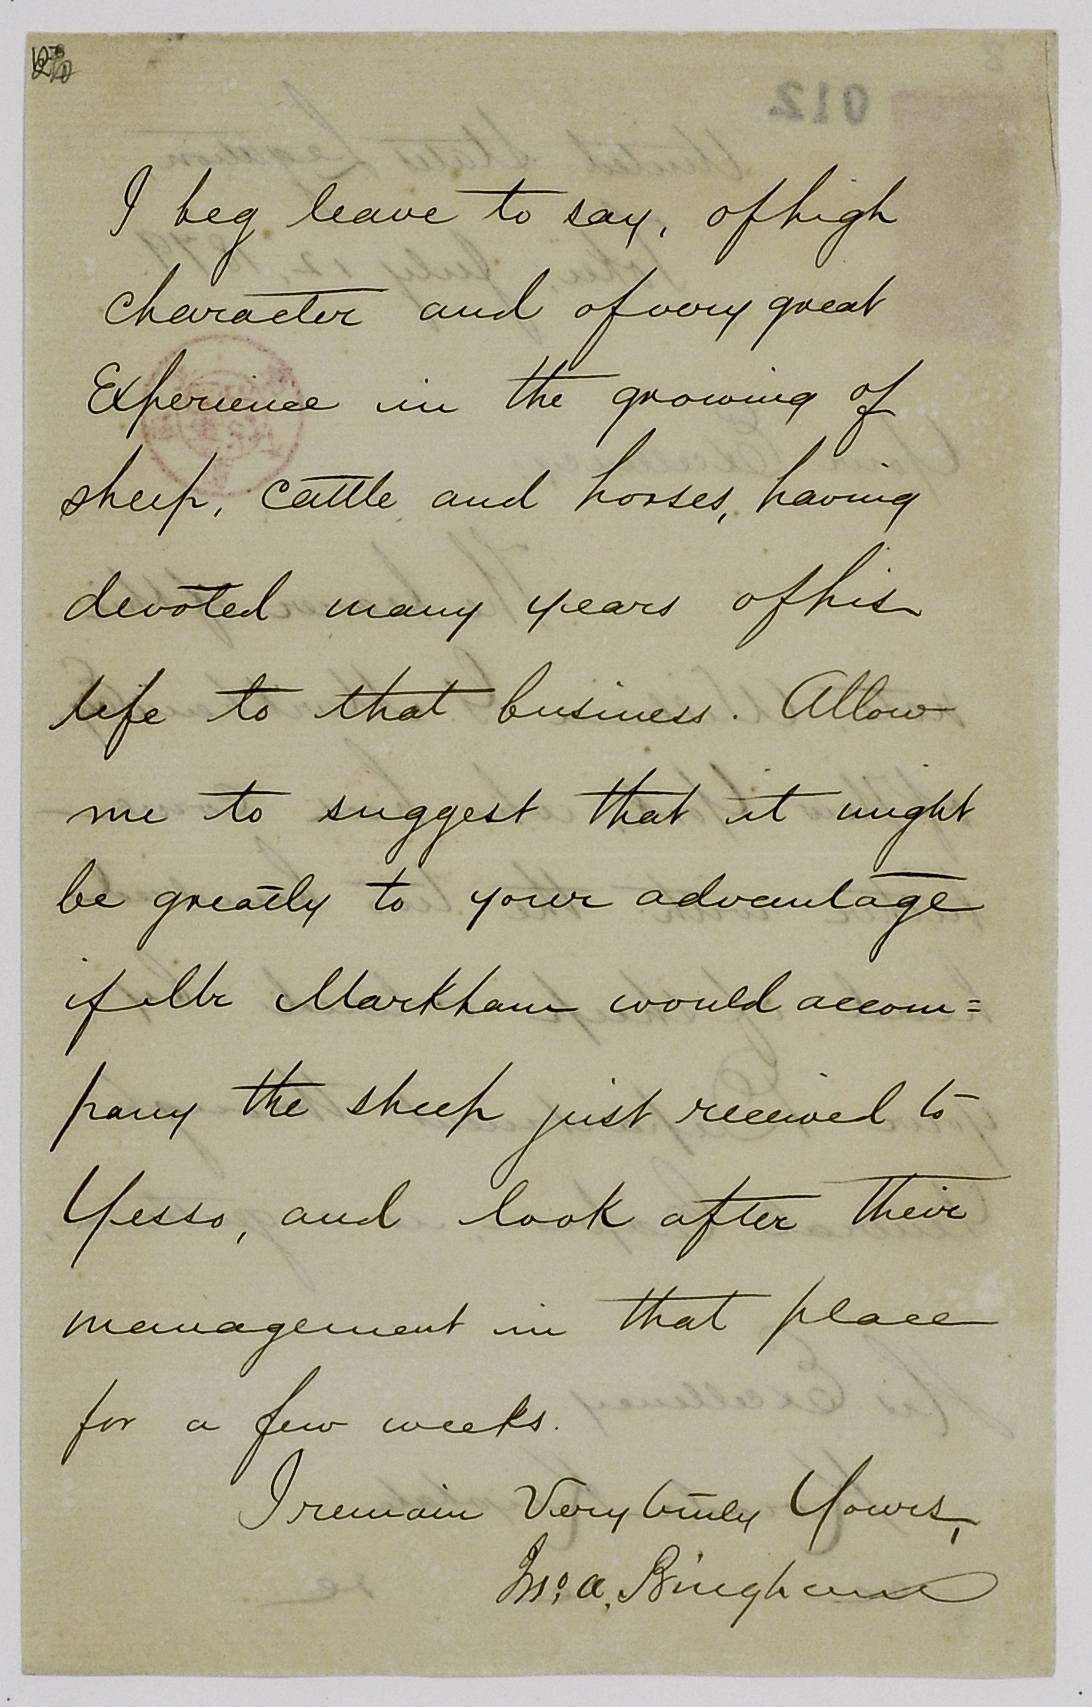 I beg leave to say, of high
character and of very great
Experience in the growing of
sheep, cattle and horses, having
devoted many years of his
life to that business. Allow
me to suggest that it might
be greatly to your advantage
if Mr Markham would accom=
pany the sheep just received to
Yesso, and look after their
management in that place
for a few weeks.
I remain Very truly Yours,
Jno. A. Bingham
012
United States Legation
July 12, 1879.
Your Excellency
His Excellency